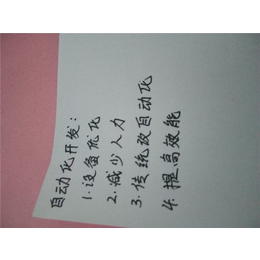 自动化开发：
1.设备优化
2.减少人力
3.传统改自动化
4.提高效能